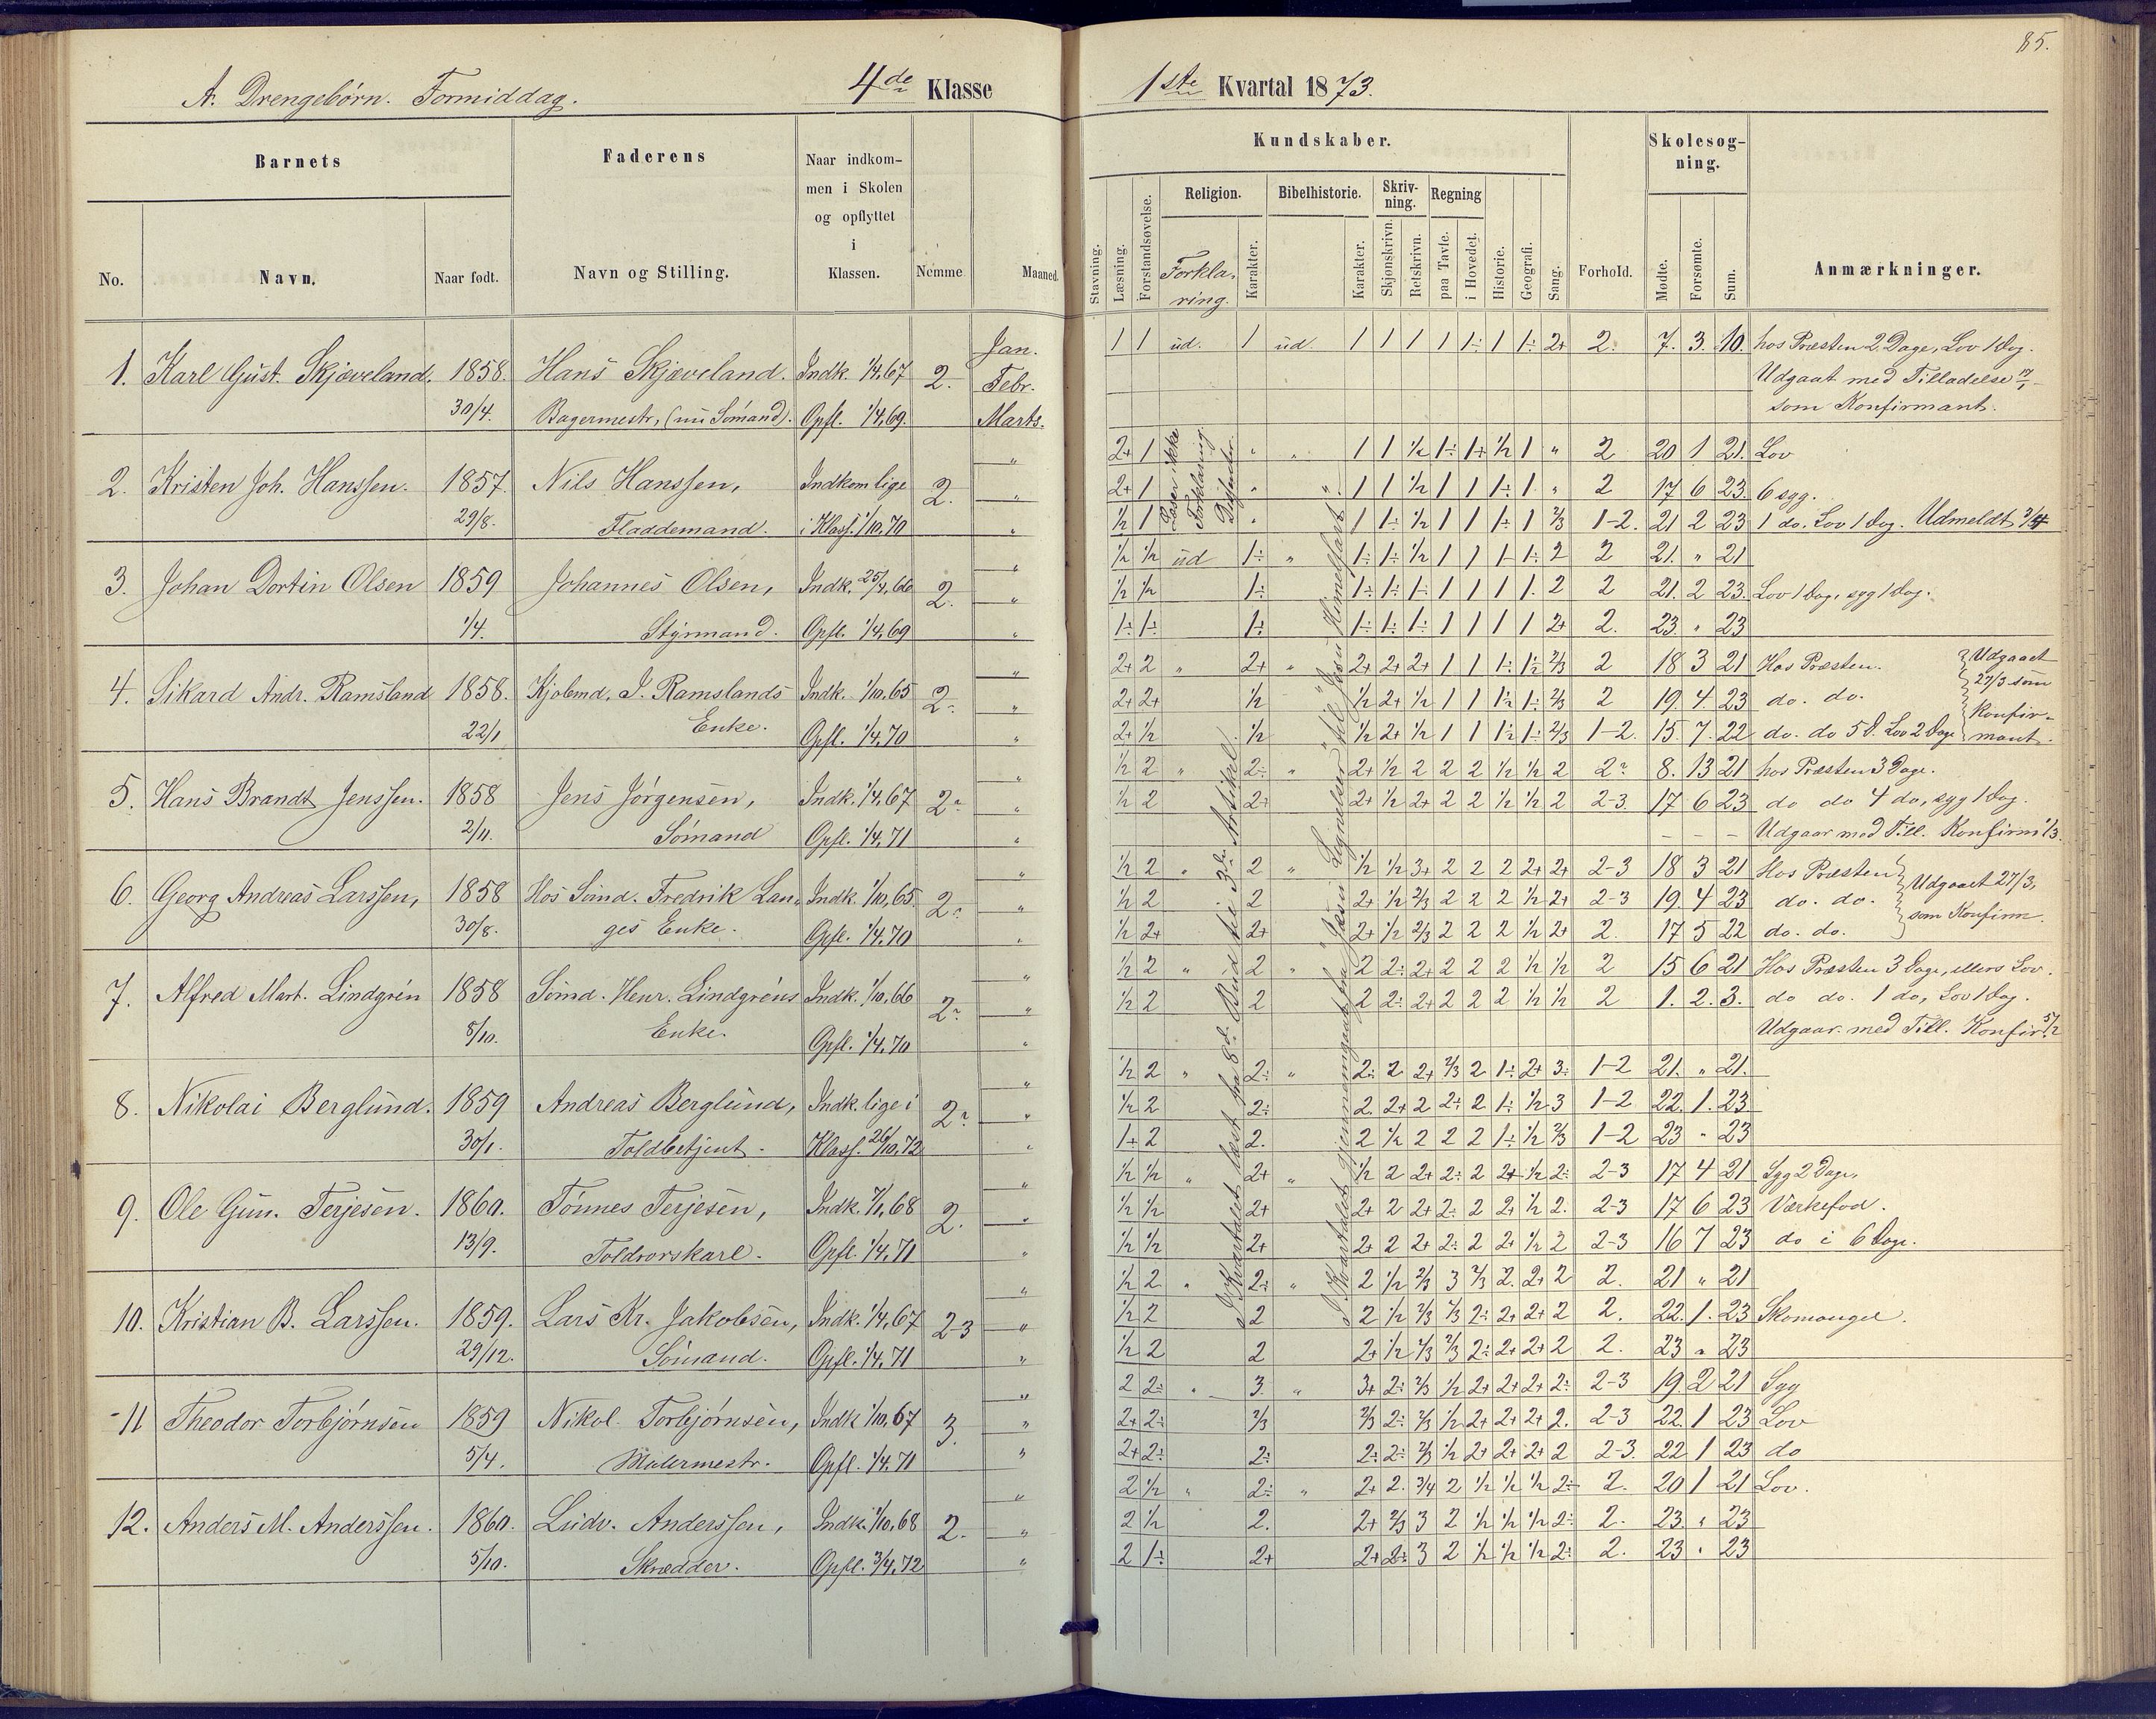 A. Drengebørn. Formiddag.
4de Klasse
1ste Kvartal 1873.
85.
Barnets
Faderens
Naar indkommen i Skolen og opflyttet i Klassen.
Nemme
Maaned.
No.
Navn.
Naar født.
Navn og Stilling.
Kundskaber.
Stavning.
Læsning.
Forstandsøvelse.
Religion.
Forklaring.
Karakter.
Bibelhistorie.
Karakter.
Skrivning.
Skjønskrivn.
Retskrivn.
Regning
paa Tavle.
i Hovedet.
Historie.
Geografi.
Sang.
Forhold.
Skolesogning.
Mødte.
Forsømte.
Sum.
Anmærkninger.
1. Karl Gust. Skjæveland. 1858. Hans Skjæveland. Indk. 1/4,67 2. Jan.
Febr.
30/4. Bagermestr, (nu Sømand). Opfl. 1/4,69. Marts.
1 1 ud. 1 ud. 1 1 1 1 1÷ 1 1÷ 2+ 2. 7. 3. 10. hos Præsten 2 Dage, Lov 1 Dag.
Udgaat med Tilladelse
som Konfirmant.
2. Kristen Joh. Hanssen. 1857. Nils Hanssen, Indkom lige 2.
29/8. Fladdemand. i Klass. 1/10,70
2+ 1 " " 1 1 1/2 1÷ 1+ 1/2 1 " 2 20 1 21. Lov
2+ 1 " " 1 1 1/2 1 1 1÷ 1 " 2 17 6 23. 6 syg.
1/2 1 " 1 1÷ 1/2 1 1 1÷ 1 2/3 1-2. 21 2 23 1 do. Lov 1 Dag. Udmeldt 3/4
Læser ikke Forklaring
3. Johan Dortin Olsen 1859 Johannes Olsen, Indk. 25/4,66 2.
1/4. Styrmand. Opfl. 1/4,69
1/2 1/2 ud 1÷ " 1÷ 1÷ 1/2 1 1 1÷ 1÷ 2 2 21. " 21
1/2 1/2 1÷ 1÷ 1÷ 1÷ 1 1 1 1. 2 2 21. 2 23. Lov 1 Dag, syg 1 Dag.
1÷ 1÷ 1÷ 1÷ 1÷ 1÷ 1 1 1 1 2+ 2. 23. " 23
4. Sikard Andr. Ramsland 1858. Kjøbmd. J. Ramslands Indk. 1/10,65 2.
22/1 Enke. Opfl. 1/4,70
2+ 2 " 2+ " 2+ 2+ 2+ 1 1 1÷ 1÷ 2/3 2 18 3 21 Hos Præsten. Udgaaet
2+ 2+ 1/2 1/2 2+ 1/2 1 1 1÷ 1÷ 2/3 2 19. 4. 23 do. do. 27/3 som
2+ 1/2 1/2 1/2 2+ 1/2 1 1 1÷ 1÷ 2/3 1-2. 15. 7. 22 do. do 5 D. Lov 2 Dage Konfirmant.
5. Hans Brandt Jenssen. 1858 Jens Jørgensen, Indk. 1/4,67 2.
2/11. Sømand Opfl. 1/4,71
1/2 2 " 2÷ " 2+ 1/2 2 2 2 1/2 1/2 2 2. 8. 13 21 hos Præsten 3 Dage.
1/2 2 2+ 2+ 1/2 2+ 2 2 1/2 1/2 2 2-3. 17 6 23 do do 4 do, syg 1 Dag.
Udgaar med Till. Konfirm 1/3.
6. Georg Andreas Larssen, 1858 Hos Sømd. Fredrik Lan- Indk. 1/10,65. 2.
30/8. ges Enke. Opfl. 1/4,70
1/2 2 " 2 " 1/2 1/2 3+ 2 2 2 2+ 2+ 2-3 18 3 21 Hos Præsten
1/2 2 2 2+ 1/2 2/3 2 2 2 1/2 2+ 2-3 19. 4 23 do. do. Udgaaet 27/3,
1/2 2+ 2+ 2+ 1/2 2/3 2 2 2 1/2 2+ 2. 17 5 22 do. do. som Konfirm.
7. Alfred Mart. Lindgrén 1858 Sømd. Henr. Lindgréns Indk. 1/10,66 2.
8/10. Enke. Opfl. 1/4,70
1/2 2 " 2 " 2 2÷ 2+ 2 2 2 1/2 1/2 2 15 6 21 Hos Præsten 3 Dage, ellers Lov.
1/2 2 2 2 2÷ 2+ 2 2 2 1/2 1/2 2 1. 2. 3. do do. 1 do, Lov 1 Dag.
Udgaar med Till. Konfir. 5/2
8. Nikolai Berglund. 1859 Andreas Berglund, Indk. lige i 2.
30/1. Toldbetjent. Klass. 26/10,72
1/2 2 " 2÷ " 2÷ 2 2+ 2/3 2 1÷ 2+ 3÷ 1-2 21. " 21.
1/2 2 2÷ 2. 2+ 2 2÷ 2 1÷ 1/2 3 1-2 22. 1. 23
1+ 2 2. 2 1/2 2 2 2 1÷ 1/2 2/3 1-2 23 " 23
9. Ole Gun. Terjesen. 1860. Tønnes Terjesen, Indk. 7/1,68 2.
13/9. Toldrorskarl. Opfl. 1/4,71
1/2 1/2 " 2+ " 1/2 2 2+ 2÷ 2 2+ 1/2 2÷ 2-3 17 4 21 Syg 2 Dage,
1/2 1/2 2+ 2+ 2 2+ 2÷ 2 2+ 1/2 2. 2-3 17 6 23 Værkefod.
1/2 1/2 2+ 2+ 2 2+ 2÷ 2 2+ 1/2 2 2-3 16 7 23 do i 6 Dage.
10. Kristian B. Larssen. 1859. Lars Kr. Jakobsen, Indk. 1/4,67 2-3
29/12. Sømand. Opfl. 1/4,71
1/2 2 " 2÷ " 2 1/2 2/3 3 2/3 2. 2+ 2 2. 21 " 21
1/2 2 2 2 1/2 2/3 2/3 2÷ 2+ 2+ 2 2. 22. 1. 23 Skomangel.
1/2 2 2 2+ 1/2 2/3 2/3 2÷ 2+ 2+ 2 2. 23 " 23
11 Theodor Torbjørnsen 1859 Nikol. Torbjørnsen, Indk 1/10,67 3.
5/4. Malermestr. Opfl. 1/4,71
2 2÷ " 3. " 3+ 2÷ 2/3 1/2 2+ 2+ 2+ 2÷ 2-3 19. 2 21 Syg
2+ 2÷ 2/3 2/3 2÷ 2/3 1/2 2+ 2+ 2+ 2. 2-3 22. 1 23 Lov
2+ 2÷ 2÷ 2÷ 2÷ 2/3 1/2 2+ 2+ 2+ 2 2-3. 22 1 23 do
12. Anders M. Anderssen. 1860. Ludv. Anderssen, Indk. 1/10,68 2.
5/10. Skrædder. Opfl. 3/4,72
2 1/2 " 2÷ " 2+ 2. 3/4 2 1/2 1/2 1/2 2÷ 2. 20 1 21 Lov.
2 1/2 2. 2+ 2/3 3 2 1/2 1/2 1/2 2÷ 2. 23. " 23
2 1÷ 2+ 2+ 2÷ 3 2 1/2 1/2 1/2 2÷ 2. 23 " 23
I Kvartalet læst fra 8de Bud til 3die Artikel
I Kvartalet gjennemgaaet fra "Jesu Lignelser" til "Jesu Himmelfart"